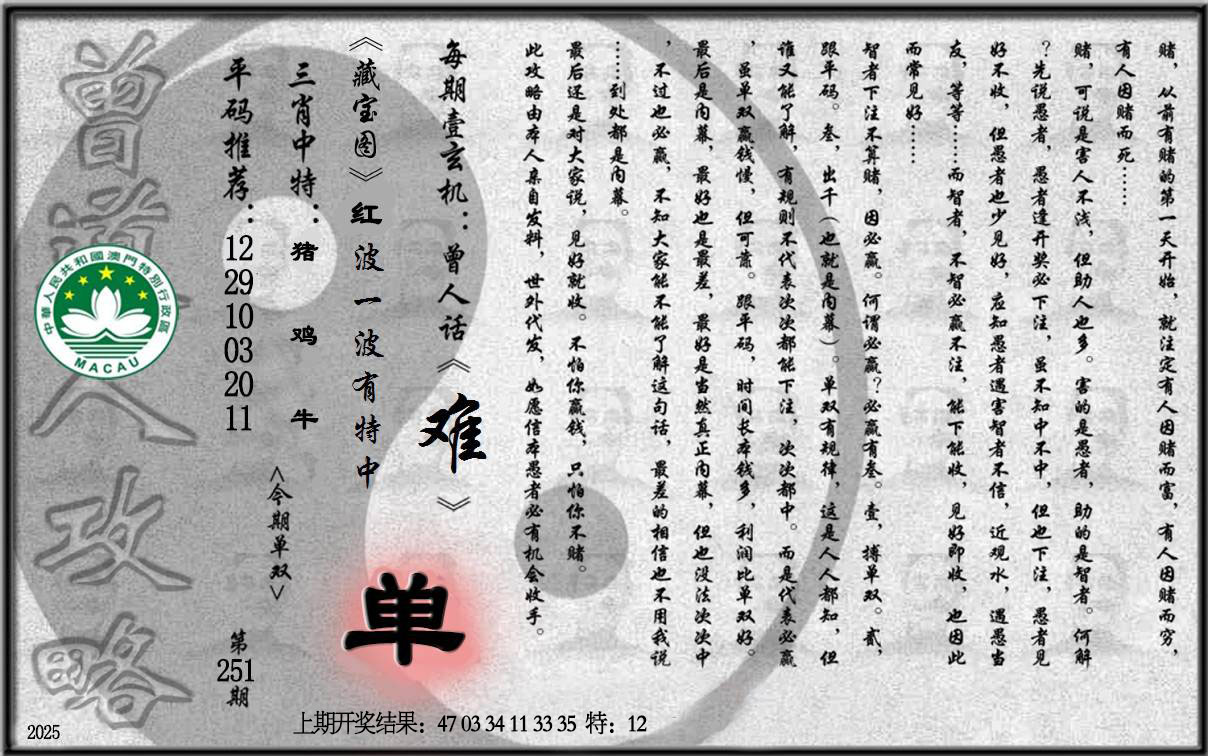 赌，从前有赌的第一天开始，就注定有人因赌而富，有人因赌而穷，
有人因赌而死……
赌，可说是害人不浅，但助人也多。害的是愚者，助的是智者。何解
？先说愚者，愚者逢开奖必下注，虽不知中不中，但也下注，愚者见
好不收，但愚者也少见好，应知愚者遇害智者不信，近观水，遇愚当
友，等等……而智者，不智必赢不注，能下能收，见好即收，也因此
而常见好……
智者下注不算赌，因必赢。何谓必赢？必赢有叁。壹，搏单双。贰，
跟平码。叁，出千（也就是内幕）。单双有规律，这是人人都知，但
谁又能了解，有规则不代表次次都能下注，次次都中。而是代表必赢
，虽单双赢钱慢，但可靠。跟平码，时间长本钱多，利润比单双好。
最后是内幕，最好也是最差，最好是当然真正内幕，但也没法次次中
，不过也必赢，不知大家能不能了解这句话，最差的相信也不用我说
……到处都是内幕。
最后还是对大家说，见好就收。不怕你赢钱，只怕你不赌。
此攻略由本人亲自发料，世外代发，如愿信本愚者必有机会收手。
每期壹玄机：曾人话《难》
《藏宝图》红波一波有特中
单
三肖中特：猪鸡牛
<今期单双>
平码推荐：12 29 10 03 20 11
第251期
曾道人攻略
中華人民共和國澳門特別行政區
MACAU
上期开奖结果：47 03 34 11 33 35 特：12
2025